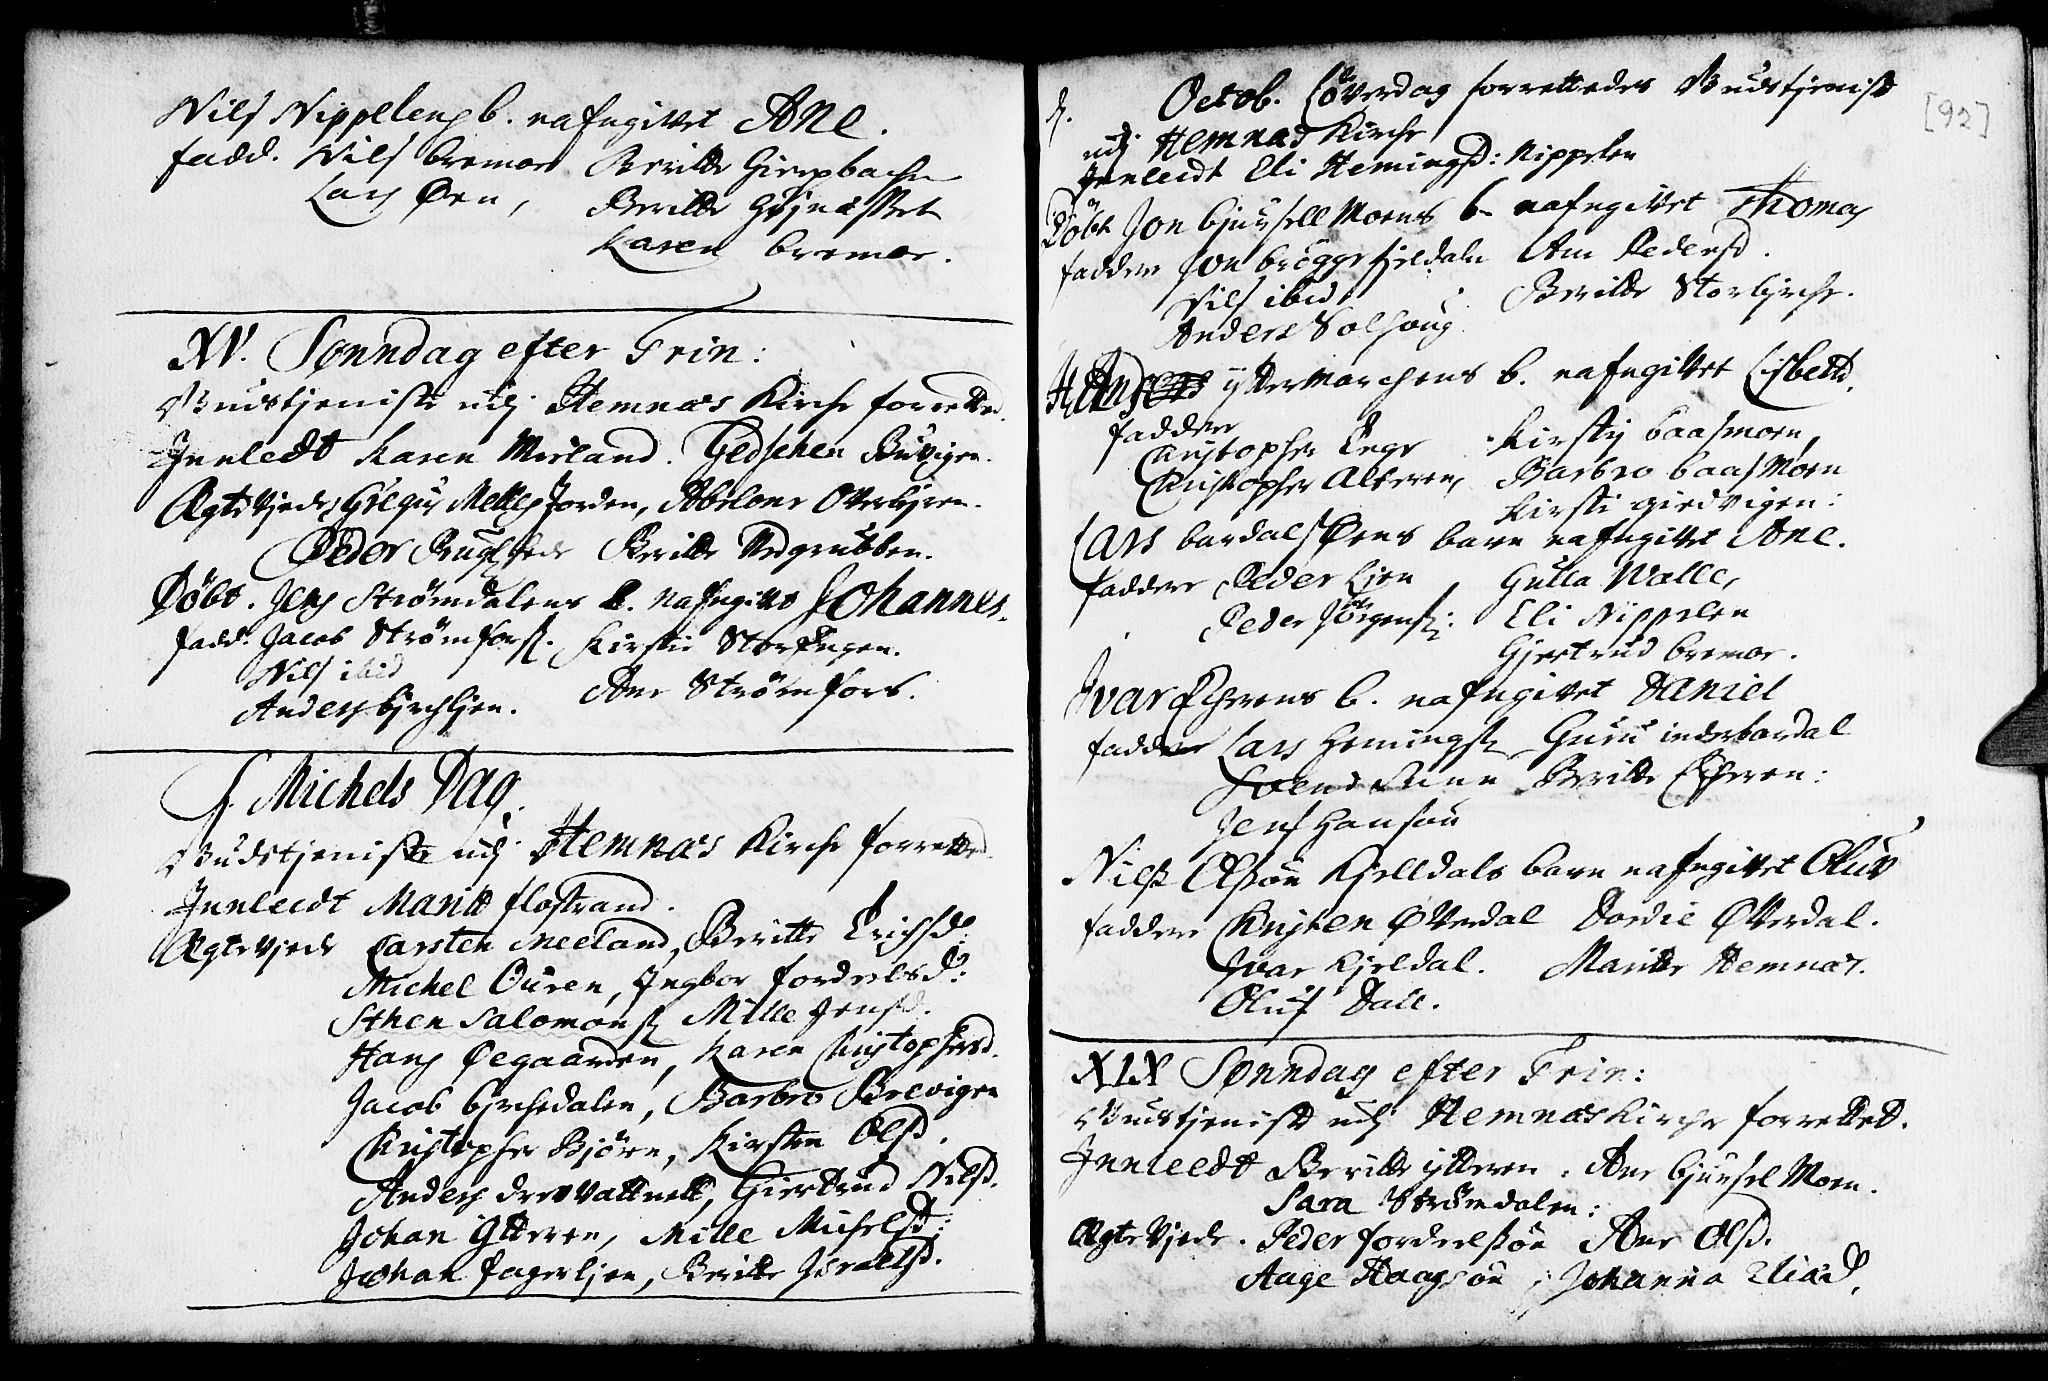 Nils Nippelens b. nafngivet Ane.
fadd. Nils Bremoe Beritte Giersbachen
Lars Øen, Beritte Gøjnæsset
Karen Bremoe.
XV. Sønndag efter Trin:
Gudstjeniste udj Hemnæs Kirche forretted.
Innledt Karen Meeland. Gedschen Buvigen.
Ægteviede, Gregus Mettesjorden, Abelone Otterbjeren.
Peder Beritte Urdgrubben.
Døbt. Jens Strømdalens b. nafngivet Johannes.
fadd. Jacob Strømfors. Kirstie StorEngen.
Nils ibid Ane Strømfors.
Anders bircklien.
S. Michels Dag.
Gudstjeniste udj Hemnæs Kirche forretted.
Innleedt Maritt flostrand.
Ægteviede Carsten Meeland, Beritte Erichsd.
Michel Ouren, Ingbor fordelsd:
Sthen Salomons. Mille Jensd.
Hans Øegaarden, Karen Christophersd.
Jacob birchedalen, Barbro Brevigen
Christopher Bjørn, Kirsten Olsd.
Anders drevvattnett, Giertrud Nilsd.
Johan Ytteren, Mille Michelsd:
Johan fagerlien, Beritte Israelsd.
[92]
d. Octob. Løverdag forrettedes Gudstjenist
udj Hemnæs Kirche
Innleedt Eli Hemingsd: Nippelen
Døbt Jon biurselMoens b. nafngivet Thomas
faddere Jon bryggefieldale Ane Pedersd.
Nils ibid Beritte Storbirche.
Anders Solhoug
yttermarchens b. nafngivet Lisbeth.
faddere
Christopher Enge Kirsty baasmoen,
Christopher Alteren, Barbro baasMoen
Kirsti giedvigen:
Lars bardalsØens barn nafngivet Ane.
faddere Peder Lien Gulla Walle,
Peder Jørgens: Eli Nippelen
Gjertrud bremoe.
Ivar Echrens b. nafngivet Daniel
faddere Lars Hemings Guru inderbardal
Svend Beritte Echren:
Jens Hansøn
Nilss Olssøn Kjelldals barn nafngivet Oluv
faddere Christen Øverdal Dordie Øverdal.
Ivar Kjeldal. Maritte Hemnæs.
Oluf Dall.
XIX Sønndag efter Trin:
Gudstjenist udj Hemnæs Kirche forretted.
Innleedt Beritte ytteren. Ane biurselMoen.
Sara Strømdalen:
Ægteviede. Peder fordelssøn Ane Olsd.
Aage Haagsøn, Johanna Eliæd.